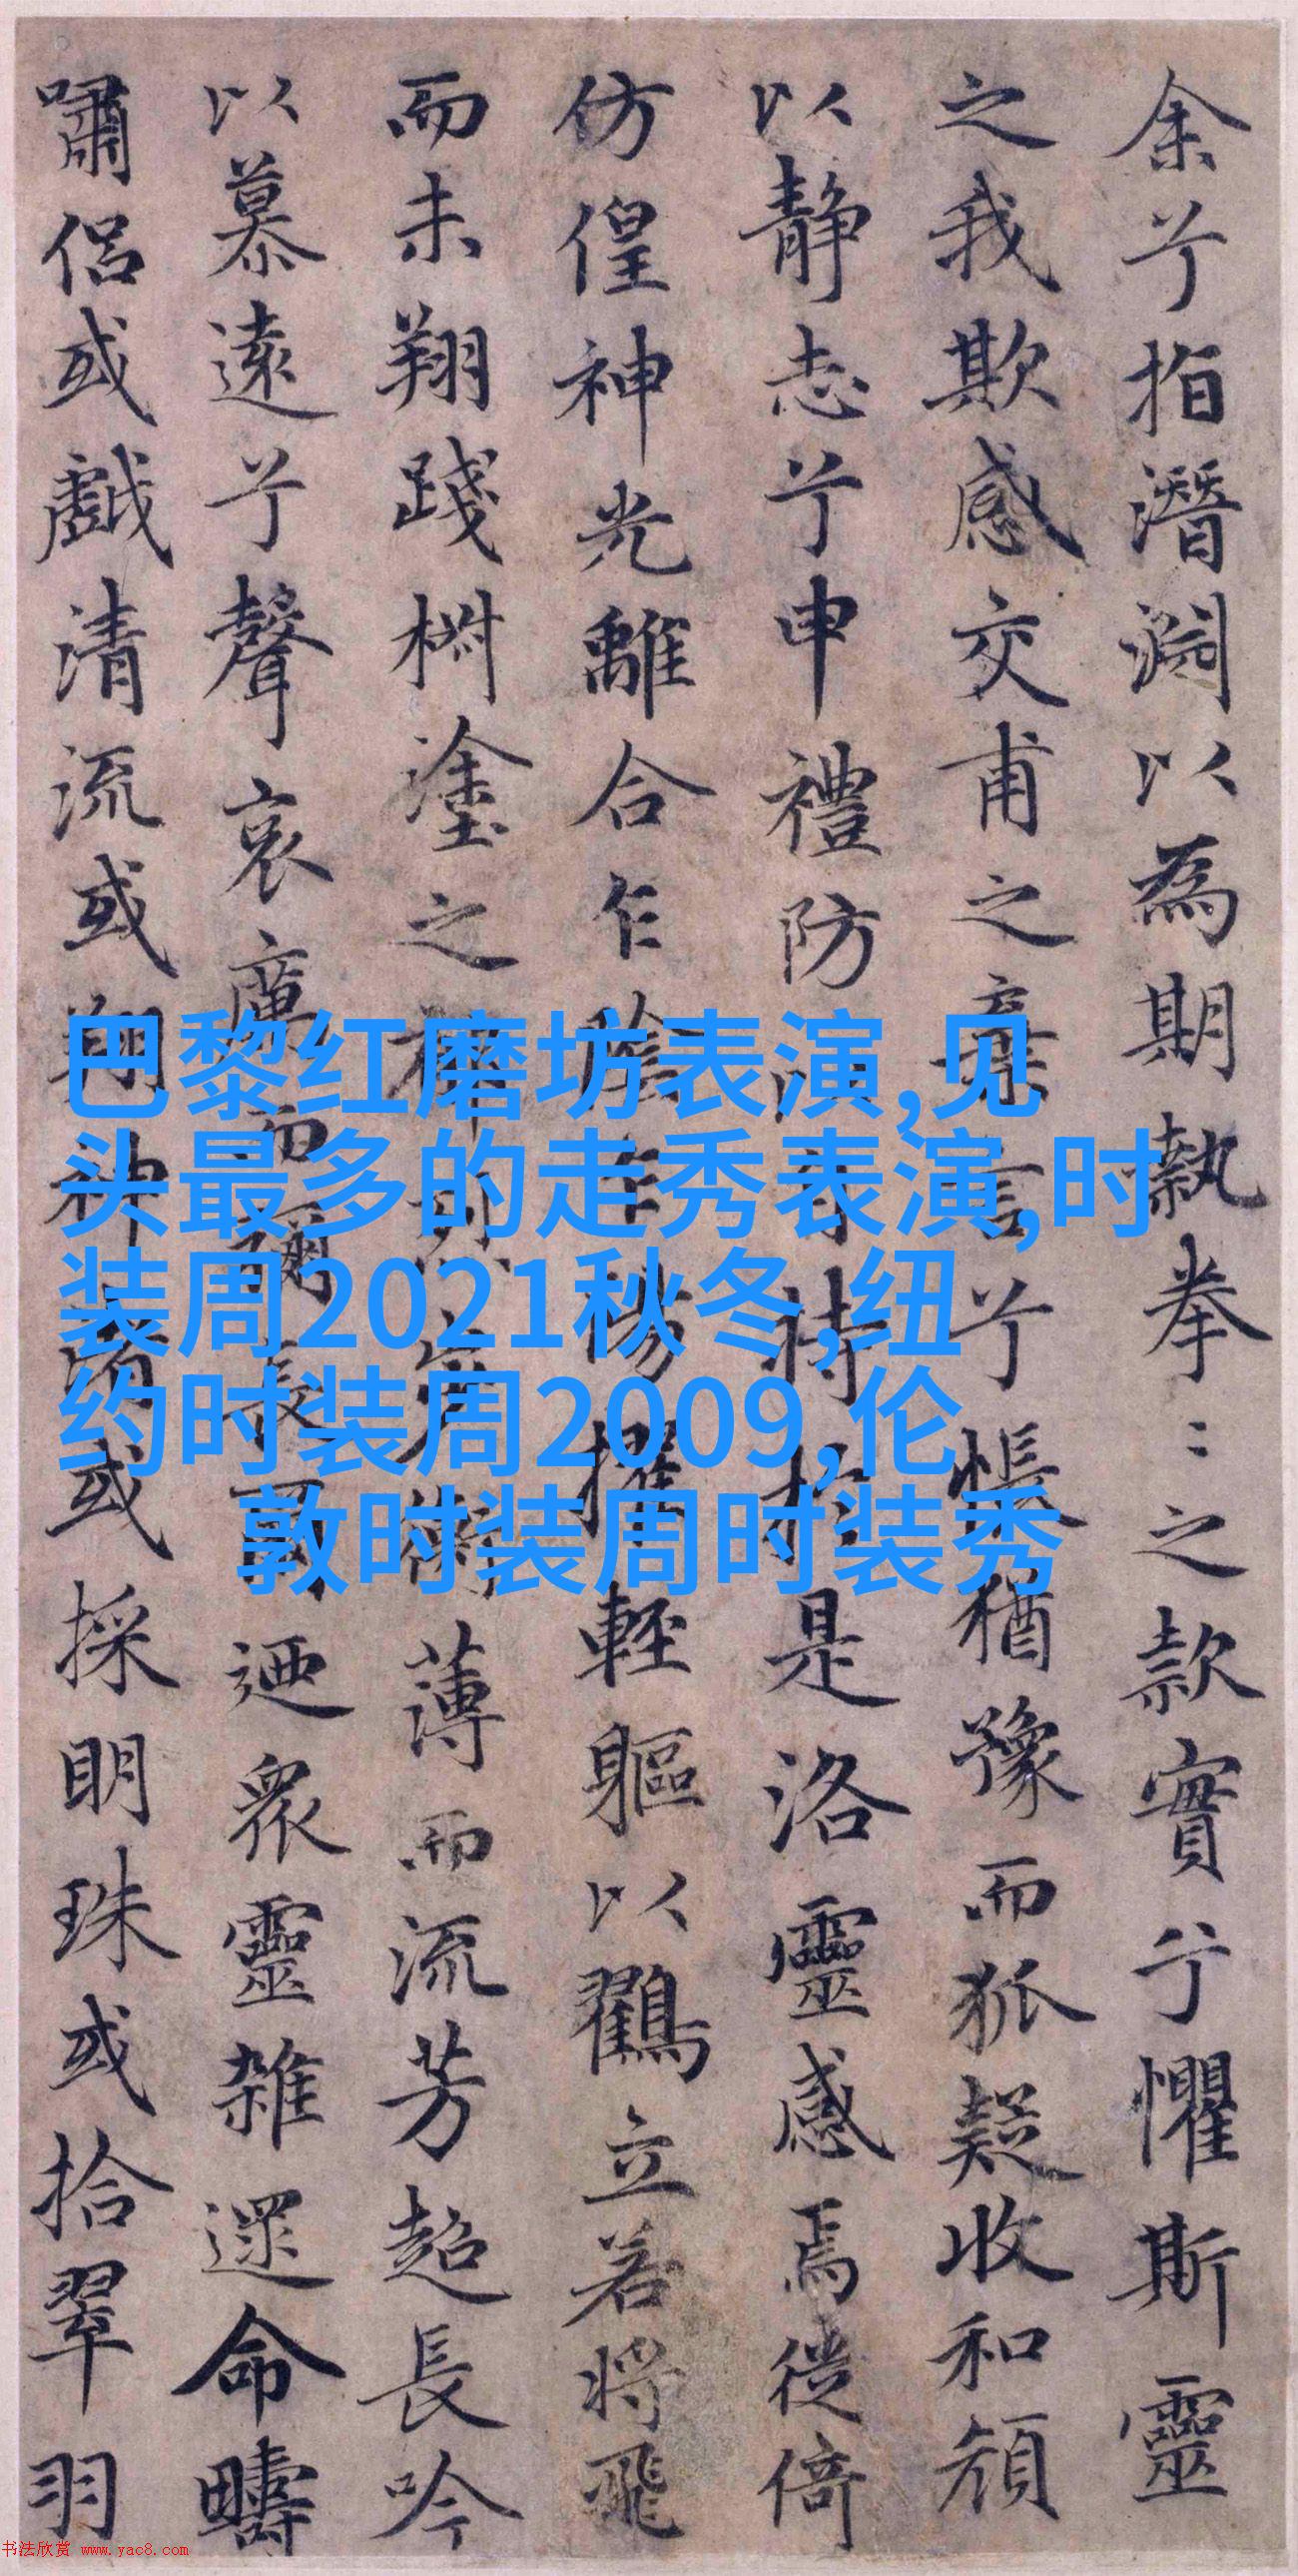 余兮指潛淵以為期執拳〻之款實兮懼斯靈
之我欺感交甫之棄言兮悵猶豫而狐疑收和顏
以靜志兮申禮防持於是洛靈感焉徙倚
仿偟神光離合乍陰乍陽擢輕軀以鸖立若將飛
而未翔踐椒塗之烈步蘅薄而流芳超長吟
以慕遠兮聲哀厲而彌長爾迺眾靈雜遝命疇
嘯侶或戲清流或翔神渚或採明珠或拾翠羽
巴黎红磨坊表演,见
头最多的走秀表演,时
装周2021秋冬,纽
约时装周2009,伦
敦时装周时装秀
书法欣赏 www.yac8.com